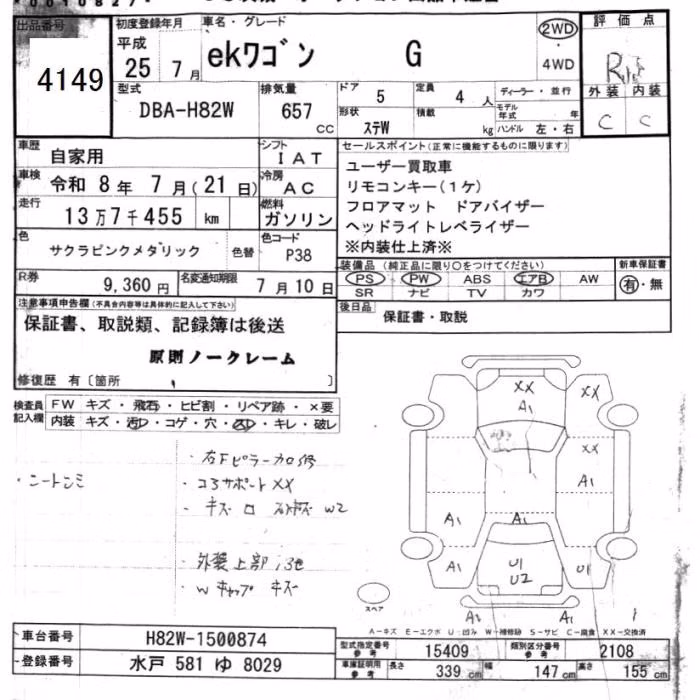 出品番号
4149
初度登録年月
平成
25 7 月
車名・グレード
ekワゴン G
2WD
4WD
評価点
R
外装 内装
C C
型式
DBA-H82W
排気量
657
cc
ドア
5
定員
4 人
ディーラー・並行
形状
ステW
積載
kg
モデル年式 年
ハンドル 左・右
車歴
自家用
シフト
IAT
車検
令和 8 年 7 月(21 日)
冷房
AC
走行
13万7千455 km
燃料
ガソリン
色
サクラピンクメタリック
色替
色コード
P38
R券
9,360 円
名変通知期限
7 月 10 日
セールスポイント(正常に機能するものに限ります)
ユーザー買取車
リモコンキー(1ケ)
フロアマット ドアバイザー
ヘッドライトレベライザー
※内装仕上済※
装備品(純正品に限り○をつけてください)
PS PW ABS エアB AW
SR ナビ TV カワ
新車保証書
有・無
後日品
保証書・取説
注意事項申告欄(不具合内容等は具体的に記入して下さい)
保証書、取説類、記録簿は後送
原則ノークレーム
修復歴 有〔箇所 〕
検査員記入欄
FW キズ・飛石・ヒビ割・リペア跡・×要
内装 キズ・汚レ・コゲ・穴・スレ・キレ・破レ
・右Fピラー
・コアサポートXX
・キズ ロ W2
・外装上部
・Wキャップ キズ
XX
A1
XX
XX
A1
A1
A1
A1
U1
U2
U1
A2
A1
スペア
A-キズ E-エクボ U-凹み W-補修跡 S-サビ C-腐食 XX-交換済
車台番号
H82W-1500874
登録番号
水戸 581 ゆ 8029
型式指定番号
参考
15409
類別区分番号
参考
2108
車庫証明用
参考
長さ
339 cm
幅
147 cm
高さ
155 cm